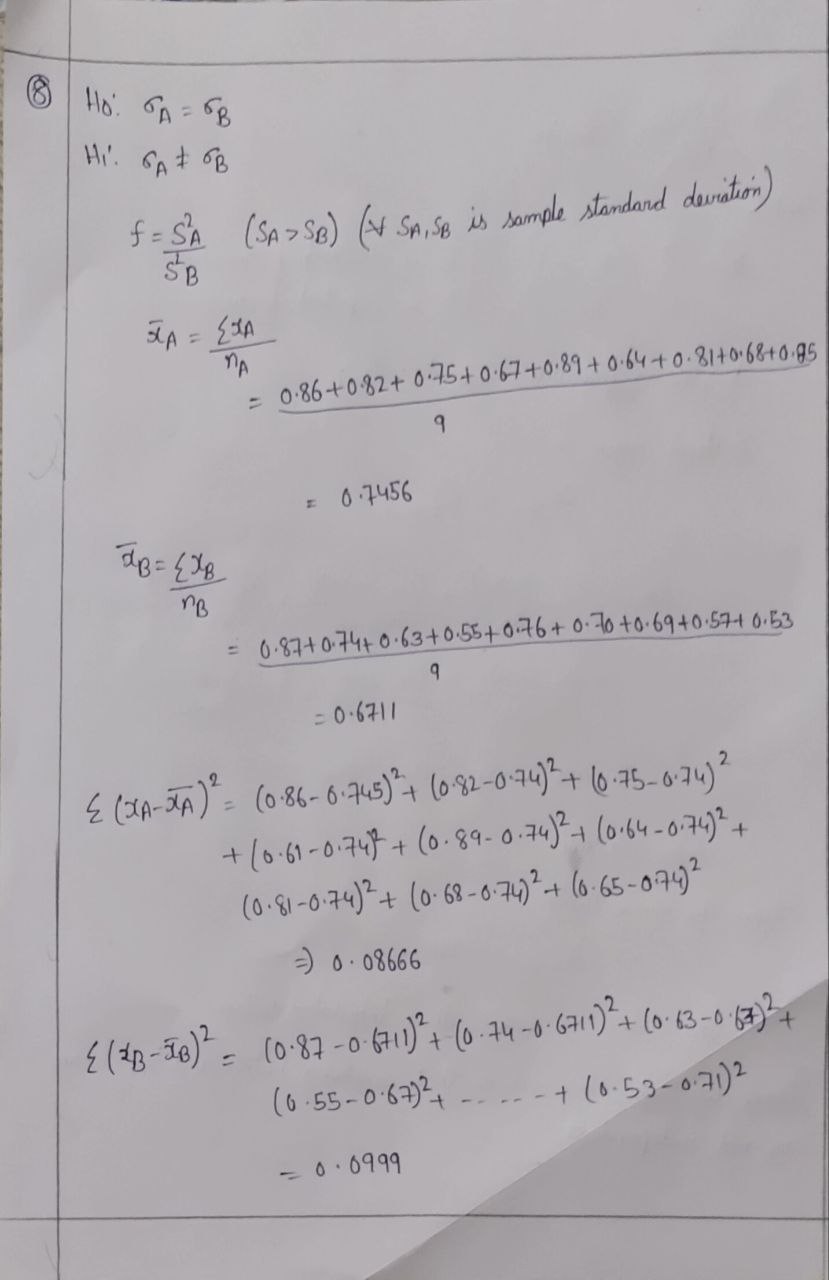 ⑧ H0: σA = σB
H1: σA ≠ σB
f = S²A / S²B (SA > SB) (∀ SA, SB is sample standard deviation)
x̄A = ΣxA / nA
= 0.86+0.82+0.75+0.67+0.89+0.64+0.81+0.68+0.85 / 9
= 0.7456
x̄B = ΣxB / nB
= 0.87+0.74+0.63+0.55+0.76+0.70+0.69+0.57+0.53 / 9
= 0.6711
Σ(xA-x̄A)² = (0.86-0.745)² + (0.82-0.74)² + (0.75-0.74)²
+ (0.61-0.74)² + (0.89-0.74)² + (0.64-0.74)² +
(0.81-0.74)² + (0.68-0.74)² + (0.65-0.74)²
⇒ 0.08666
Σ(xB-x̄B)² = (0.87-0.6711)² + (0.74-0.6711)² + (0.63-0.67)² +
(0.55-0.67)² + ------ + (0.53-0.71)²
= 0.0999